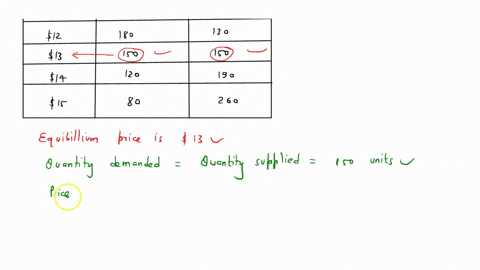 $12 180 130
$13 150 150
$14 120 190
$15 80 260
Equibillium price is $13
Quantity demanded = Quantity supplied = 150 units
Price